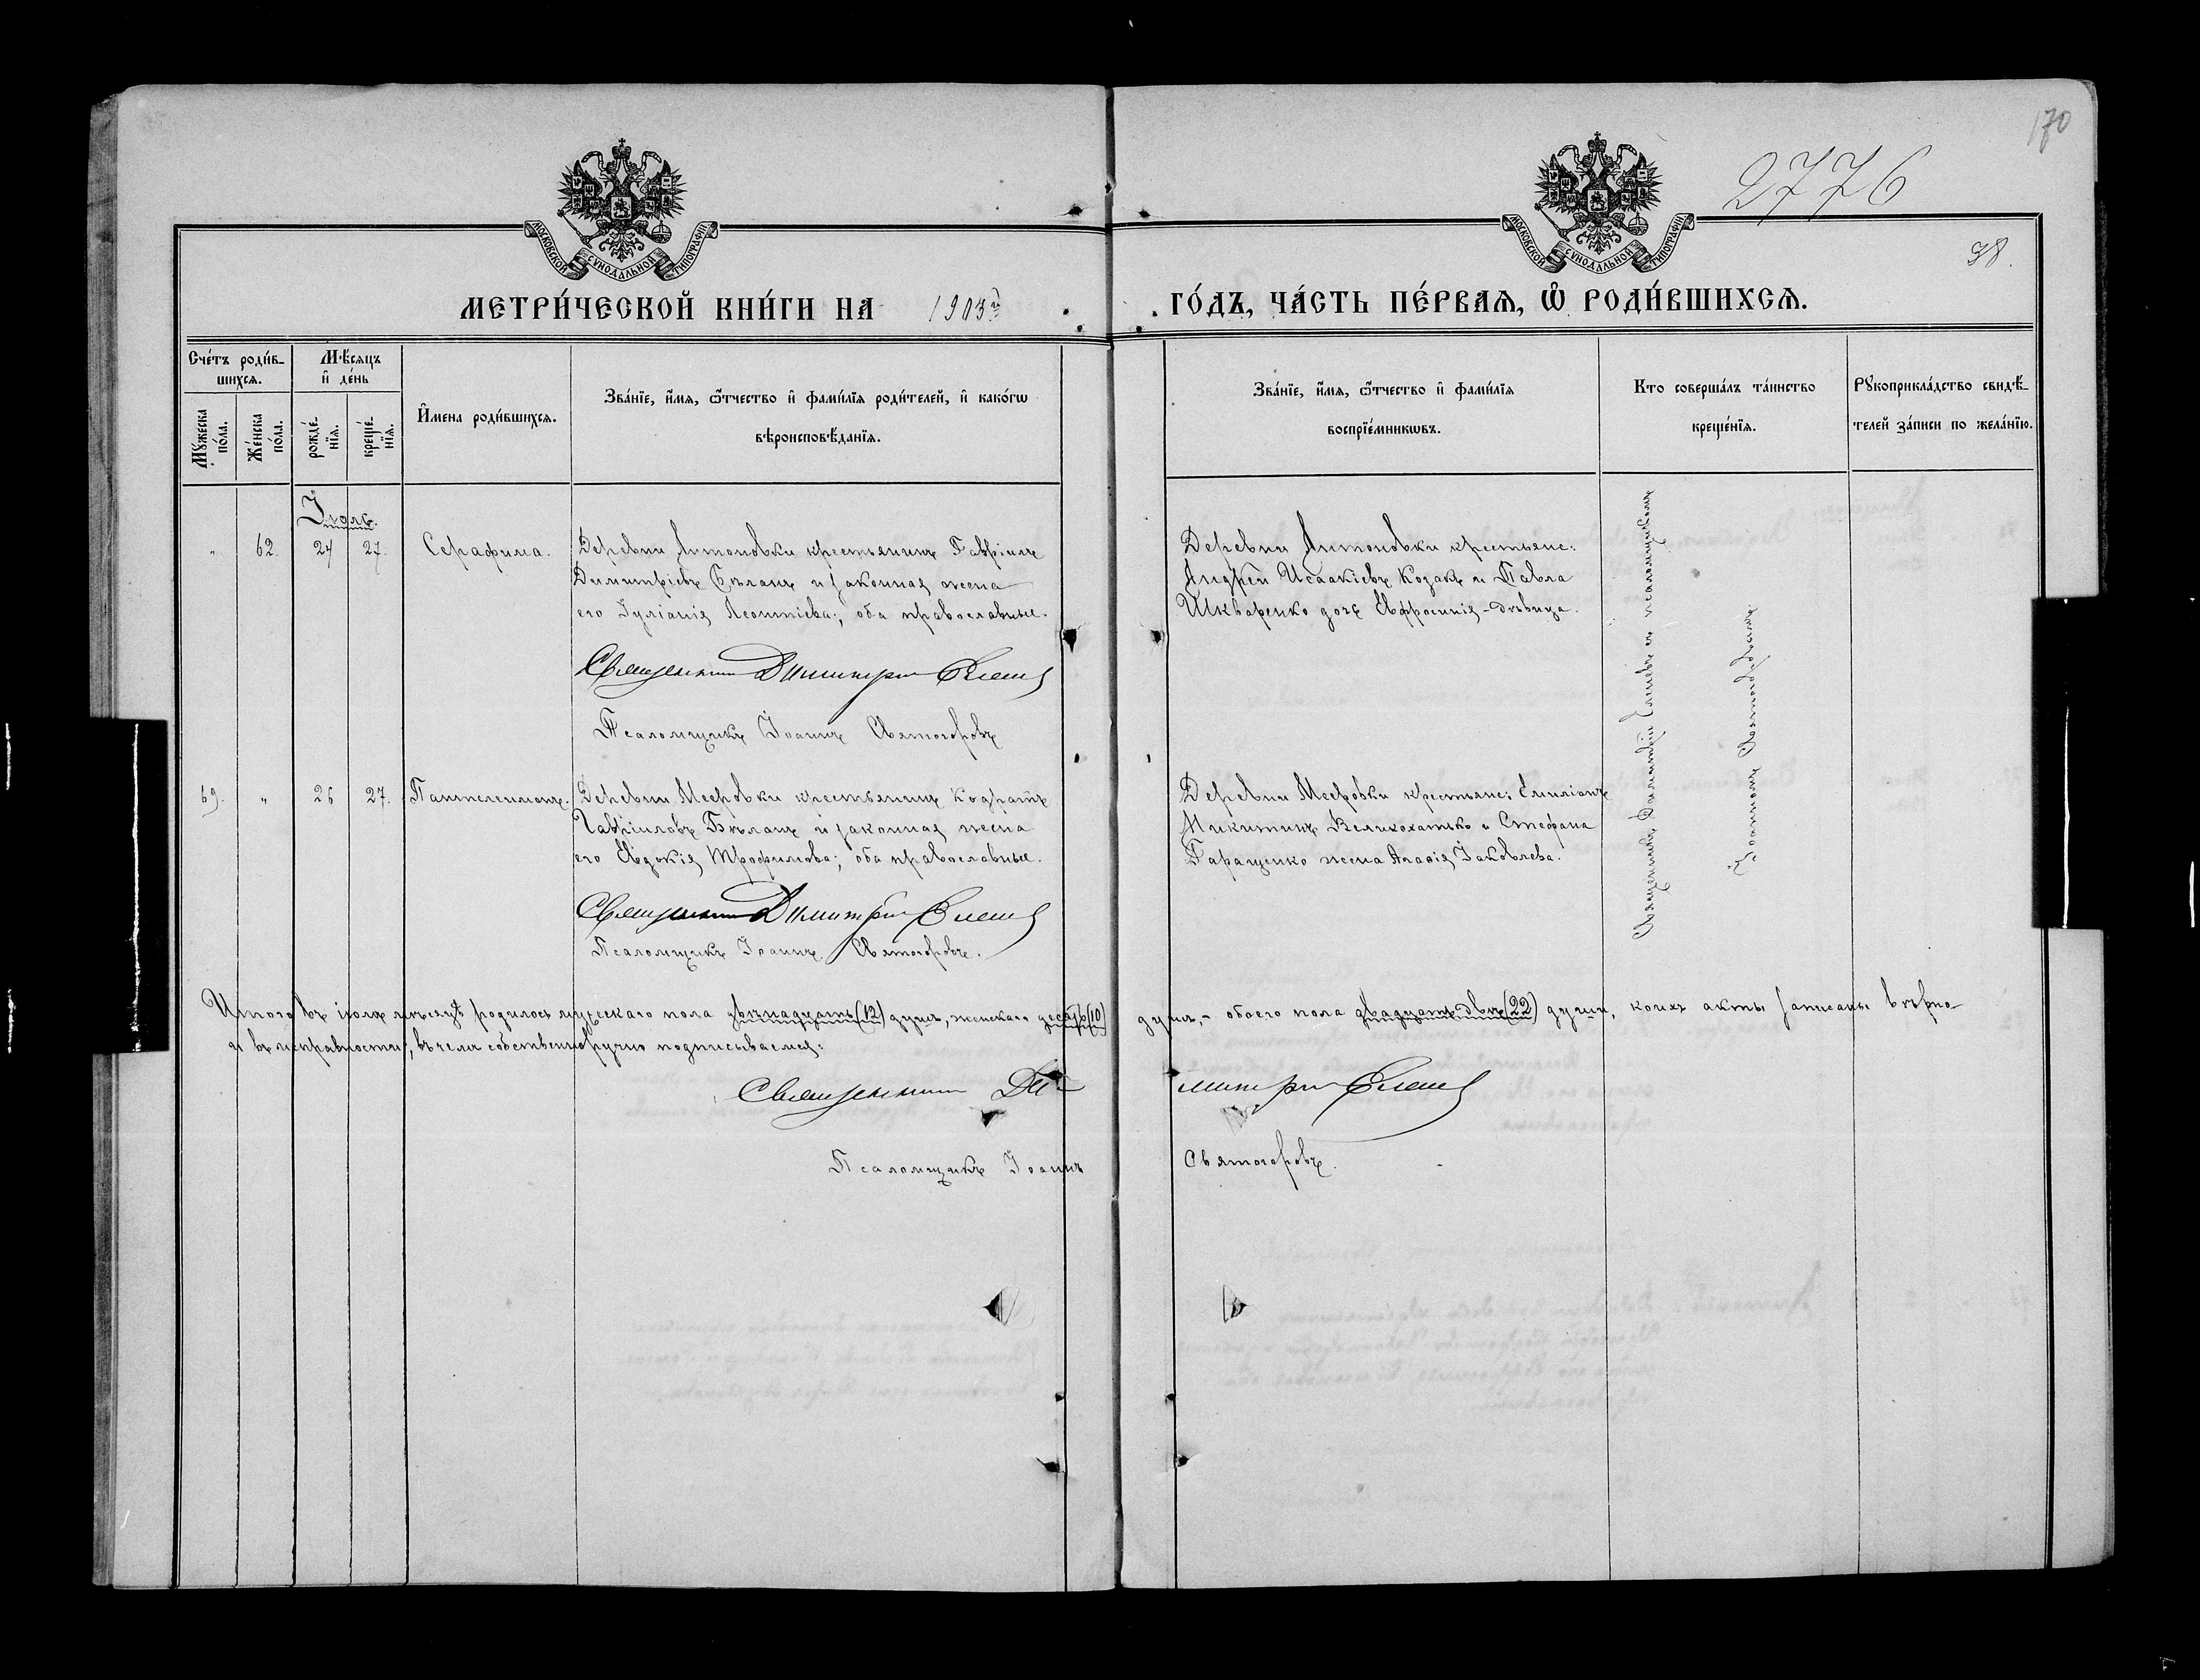 170
2776
38.
МОСКОВСКОЙ СѴНОДАЛЬНОЙ ТИПОГРАФІИ
МОСКОВСКОЙ СѴНОДАЛЬНОЙ ТИПОГРАФІИ
МЕТРИ́ЧЕСКОЙ КНИ́ГИ НА 1903й ГО́ДЪ, ЧА́СТЬ ПЕ́РВАЯ, Ѡ РОДИ́ВШИХСЯ.
Сче́тъ роди́вшихся.
Му́жеска пола.
Же́нска по́ла.
Мѣ́сяцъ и де́нь
рожде́нїя.
креще́нїя.
И́мена роди́вшихся.
Зва́нїе, и́мя, ѿтчество и фами́лїя роди́телей, и како́гѡ
вѣроисповѣ́данїя.
Зва́нїе, и́мя, ѿтчество и фами́лїя
воспрїе́мникѡвъ.
Кто соверша́лъ та́инство
креще́нїя.
Рꙋкоприкла́дство свидѣ́телей за́писи по жела́нїю.
Іюль.
" 62. 24 27. Серафима.
Деревни Антоновки крестьянинъ Гавріилъ
Димитріевъ Бѣланъ и законная жена
его Іуліанія Леонтіева; оба православные.
Священникъ Димитрій
Псаломщикъ Іоаннъ Святогоровъ
Деревни Антоновки крестьяне:
Андрей Исаакіевъ Козакъ и Павла
Шкваренко дочь Евфросинія - дѣвица.
Священникъ Димитрій Еленевъ съ псаломщикомъ
Іоанномъ Святогоровымъ
69. " 26 27. Пантелеимонъ.
Деревни Мееровки крестьянинъ Кодратъ
Гавріиловъ Бѣланъ и законная жена
его Евдокія Трофимова; оба православные.
Священникъ Димитрій
Псаломщикъ Іоаннъ Святогоровъ.
Деревни Мееровки крестьяне: Емиліанъ
Никитинъ Великохатько и Стефана
Таращенко жена Агафія Іаковлева.
Итого въ іюлѣ мѣсяцѣ родилось мужескаго пола двѣнадцать (12) душъ, женскаго десять (10) душъ, - обоего пола двадцать двѣ (22) души, коихъ акты записаны вѣрно
и въ исправности, въ чемъ собственноручно подписываемся:
Священникъ Димитрій
Псаломщикъ Іоаннъ Святогоровъ.